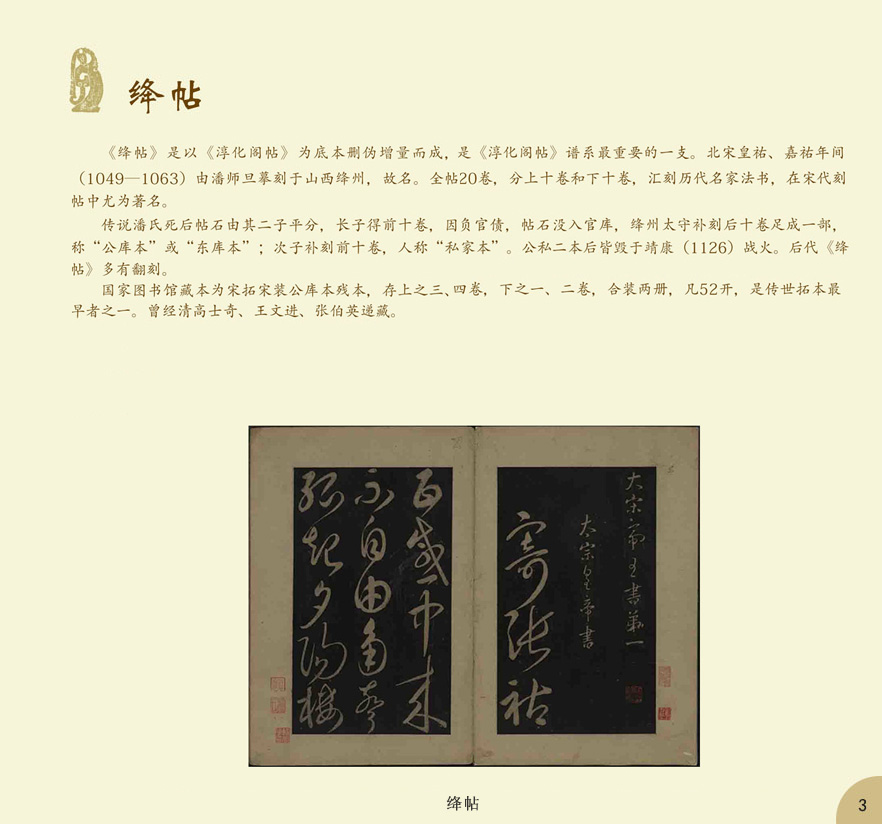 绛帖
《绛帖》是以《淳化阁帖》为底本删伪增量而成，是《淳化阁帖》谱系最重要的一支。北宋皇祐、嘉祐年间
（1049—1063）由潘师旦摹刻于山西绛州，故名。全帖20卷，分上十卷和下十卷，汇刻历代名家法书，在宋代刻
帖中尤为著名。
传说潘氏死后帖石由其二子平分，长子得前十卷，因负官债，帖石没入官库，绛州太守补刻后十卷足成一部，
称“公库本”或“东库本”；次子补刻前十卷，人称“私家本”。公私二本后皆毁于靖康（1126）战火。后代《绛
帖》多有翻刻。
国家图书馆藏本为宋拓宋装公库本残本，存上之三、四卷，下之一、二卷，合装两册，凡52开，是传世拓本最
早者之一。曾经清高士奇、王文进、张伯英递藏。
大宋帝王書第一
太宗皇帝書
寄張祜
百感中来
不自由角聲
孤起夕陽樓
绛帖
3